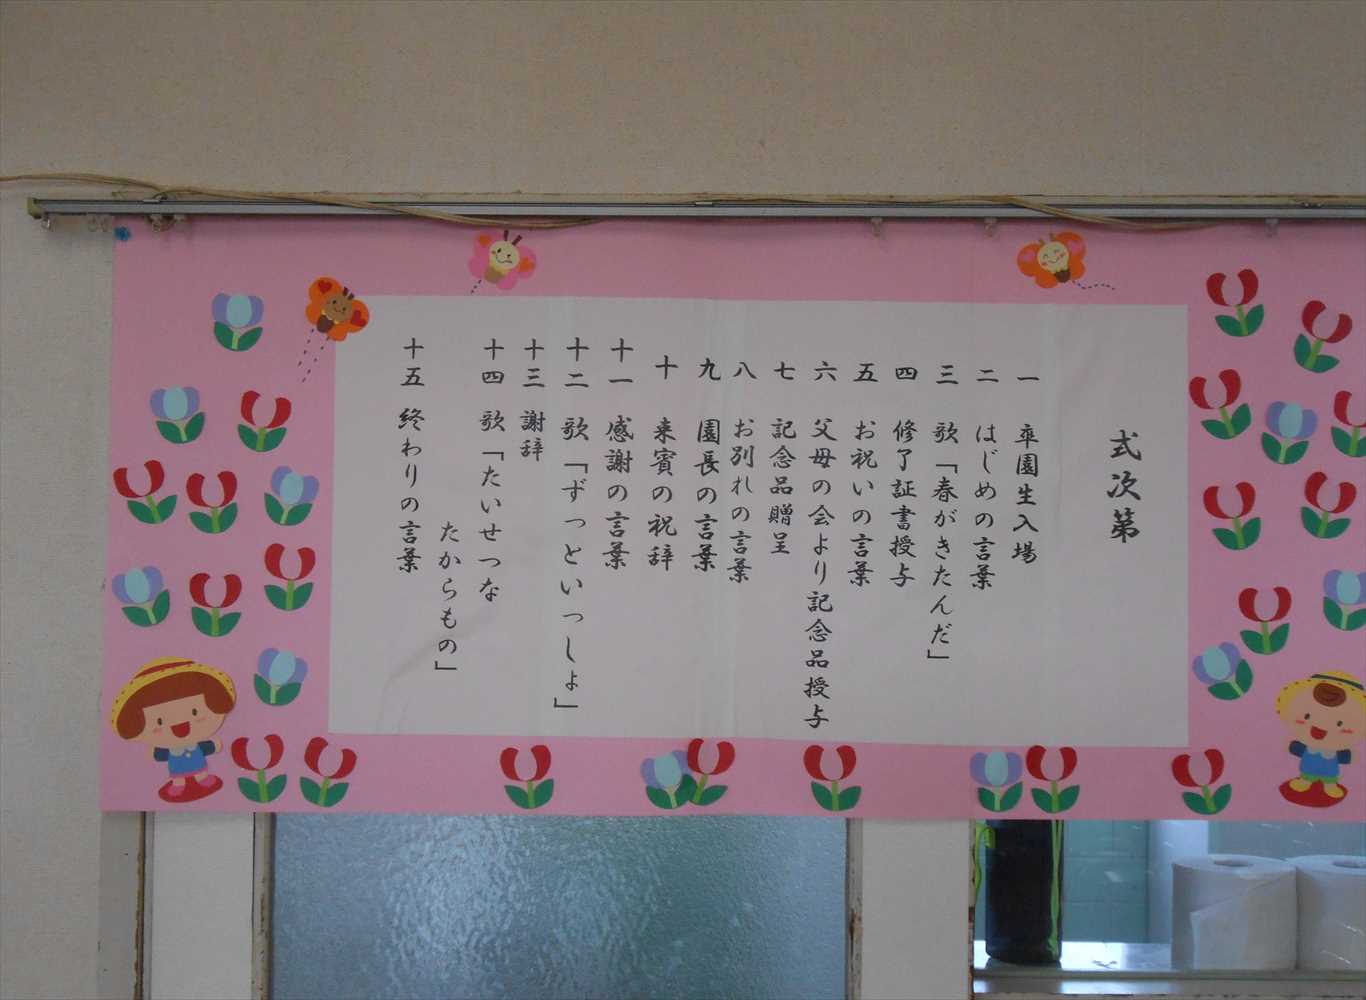 式次第
一 卒園生入場
二 はじめの言葉
三 歌「春がきたんだ」
四 修了証書授与
五 お祝いの言葉
六 父母の会より記念品授与
七 記念品贈呈
八 お別れの言葉
九 園長の言葉
十 来賓の祝辞
十一 感謝の言葉
十二 歌「ずっといっしょ」
十三 謝辞
十四 歌「たいせつな
たからもの」
十五 終わりの言葉